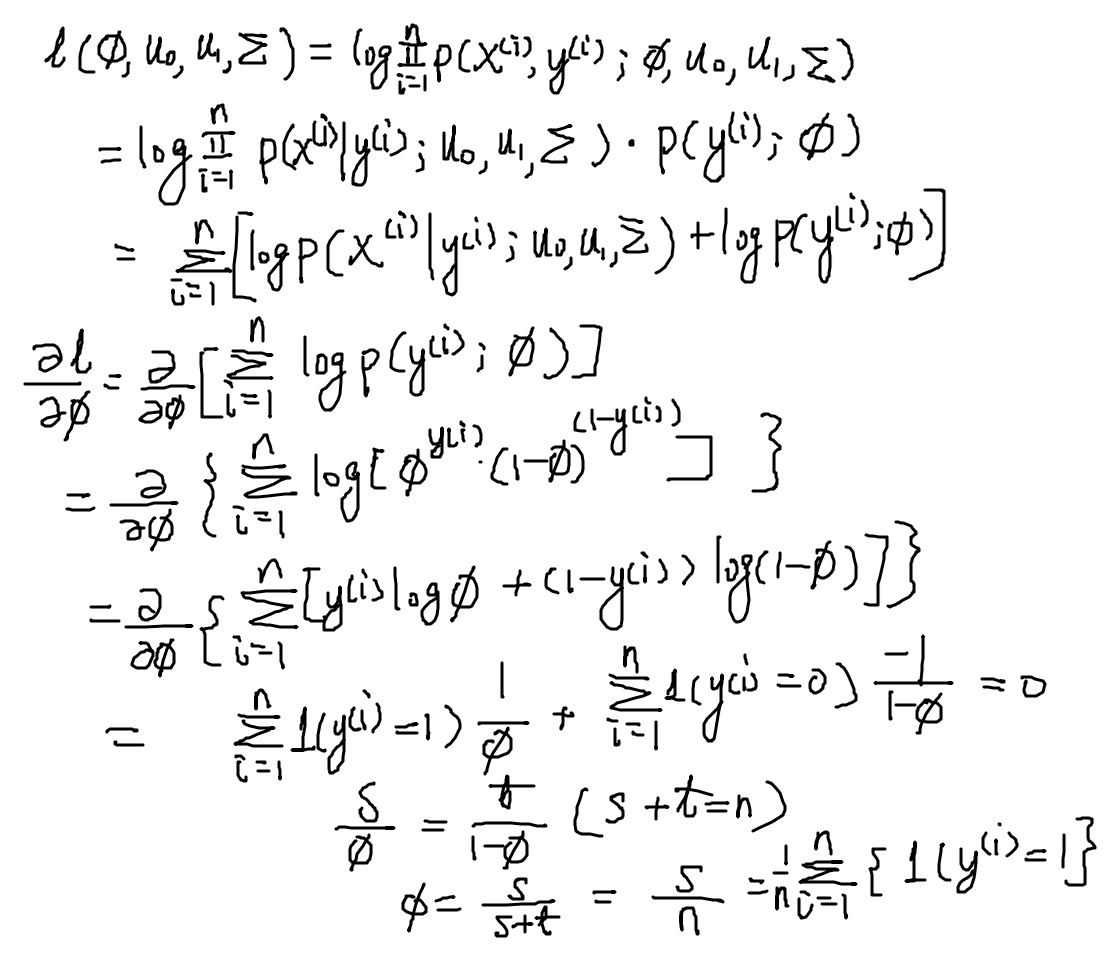 ℓ(∅, u₀, u₁, Σ) = log ∏ᵢ₌₁ⁿ p(x⁽ⁱ⁾, y⁽ⁱ⁾; ∅, u₀, u₁, Σ)
= log ∏ᵢ₌₁ⁿ p(x⁽ⁱ⁾|y⁽ⁱ⁾; u₀, u₁, Σ) · p(y⁽ⁱ⁾; ∅)
= Σᵢ₌₁ⁿ [log p(x⁽ⁱ⁾|y⁽ⁱ⁾; u₀, u₁, Σ) + log p(y⁽ⁱ⁾; ∅)]
∂ℓ/∂∅ = ∂/∂∅ [Σᵢ₌₁ⁿ log p(y⁽ⁱ⁾; ∅)]
= ∂/∂∅ {Σᵢ₌₁ⁿ log[∅^y⁽ⁱ⁾ · (1-∅)^(1-y⁽ⁱ⁾)]}
= ∂/∂∅ {Σᵢ₌₁ⁿ [y⁽ⁱ⁾ log ∅ + (1-y⁽ⁱ⁾) log(1-∅)]}
= Σᵢ₌₁ⁿ 1(y⁽ⁱ⁾=1) 1/∅ + Σᵢ₌₁ⁿ 1(y⁽ⁱ⁾=0) -1/(1-∅) = 0
s/∅ = t/(1-∅) (s+t=n)
∅ = s/(s+t) = s/n = 1/n Σᵢ₌₁ⁿ {1(y⁽ⁱ⁾=1}